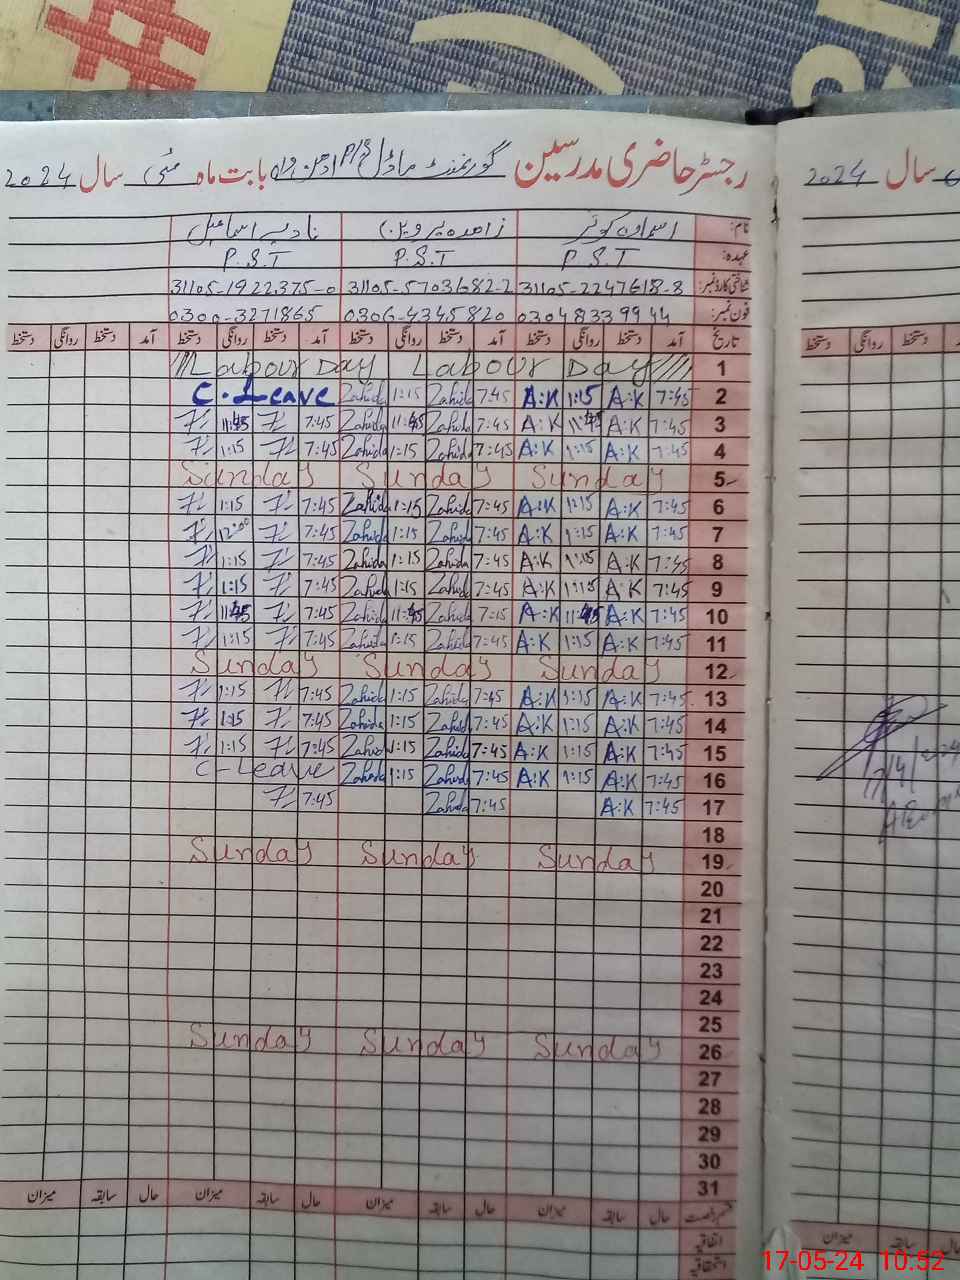 رجسٹر حاضری مدرسین گورنمنٹ ماڈل بابت ماہ مئی سال 2024
نام: اسماء کوثر زاھدہ پروین نادیہ اسماعیل
عہدہ: P.S.T P.S.T P.S.T
شناختی کارڈ نمبر: 31105-2247618-8 31105-5703682-2 31105-1922375-0
فون نمبر: 03048339944 0306-4345820 0300-3271865
تاریخ آمد دستخط روانگی دستخط آمد دستخط روانگی دستخط آمد دستخط روانگی دستخط آمد دستخط روانگی دستخط
1 Labour Day Labour Day
2 7:45 A:K 1:15 A:K 7:45 Zahida 1:15 Zahida C.Leave
3 7:45 A:K 11:45 A:K 7:45 Zahida 11:45 Zahida 7:45 11:45
4 7:45 A:K 1:15 A:K 7:45 Zahida 1:15 Zahida 7:45 1:15
5 Sunday Sunday Sunday
6 7:45 A:K 1:15 A:K 7:45 Zahida 1:15 Zahida 7:45 1:15
7 7:45 A:K 1:15 A:K 7:45 Zahida 1:15 Zahida 7:45 12:00
8 7:45 A:K 1:15 A:K 7:45 Zahida 1:15 Zahida 7:45 1:15
9 7:45 A:K 1:15 A:K 7:45 Zahida 1:15 Zahida 7:45 1:15
10 7:45 A:K 11:45 A:K 7:45 Zahida 11:45 Zahida 7:45 11:45
11 7:45 A:K 1:15 A:K 7:45 Zahida 1:15 Zahida 7:45 1:15
12 Sunday Sunday Sunday
13 7:45 A:K 1:15 A:K 7:45 Zahida 1:15 Zahida 7:45 1:15
14 7:45 A:K 1:15 A:K 7:45 Zahida 1:15 Zahida 7:45 1:15
15 7:45 A:K 1:15 A:K 7:45 Zahida 1:15 Zahida 7:45 1:15
16 7:45 A:K 1:15 A:K 7:45 Zahida 1:15 Zahida C-Leave
17 7:45 A:K 7:45 Zahida 7:45
18
19 Sunday Sunday Sunday
20
21
22
23
24
25
26 Sunday Sunday Sunday
27
28
29
30
31
قسم رخصت حال سابقہ میزان حال سابقہ میزان حال سابقہ میزان حال سابقہ میزان
اتفاقیہ
استحقاقیہ
سال 2024
دستخط روانگی دستخط
سابقہ میزان
17-05-24 10:52